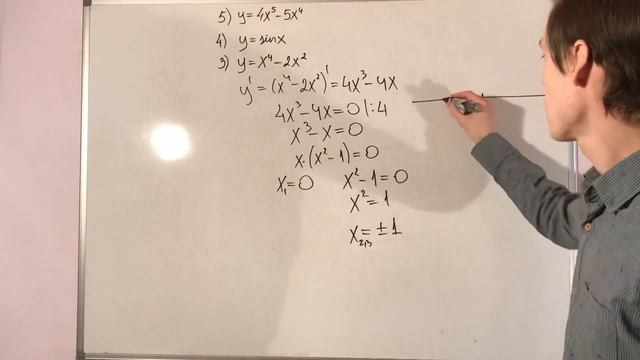 5) y = 4x⁵ - 5x⁴
4) y = sinx
3) y = x⁴ - 2x²
y' = (x⁴ - 2x²)' = 4x³ - 4x
4x³ - 4x = 0 |: 4
x³ - x = 0
x · (x² - 1) = 0
x₁ = 0 x² - 1 = 0
x² = 1
x₂,₃ = ± 1